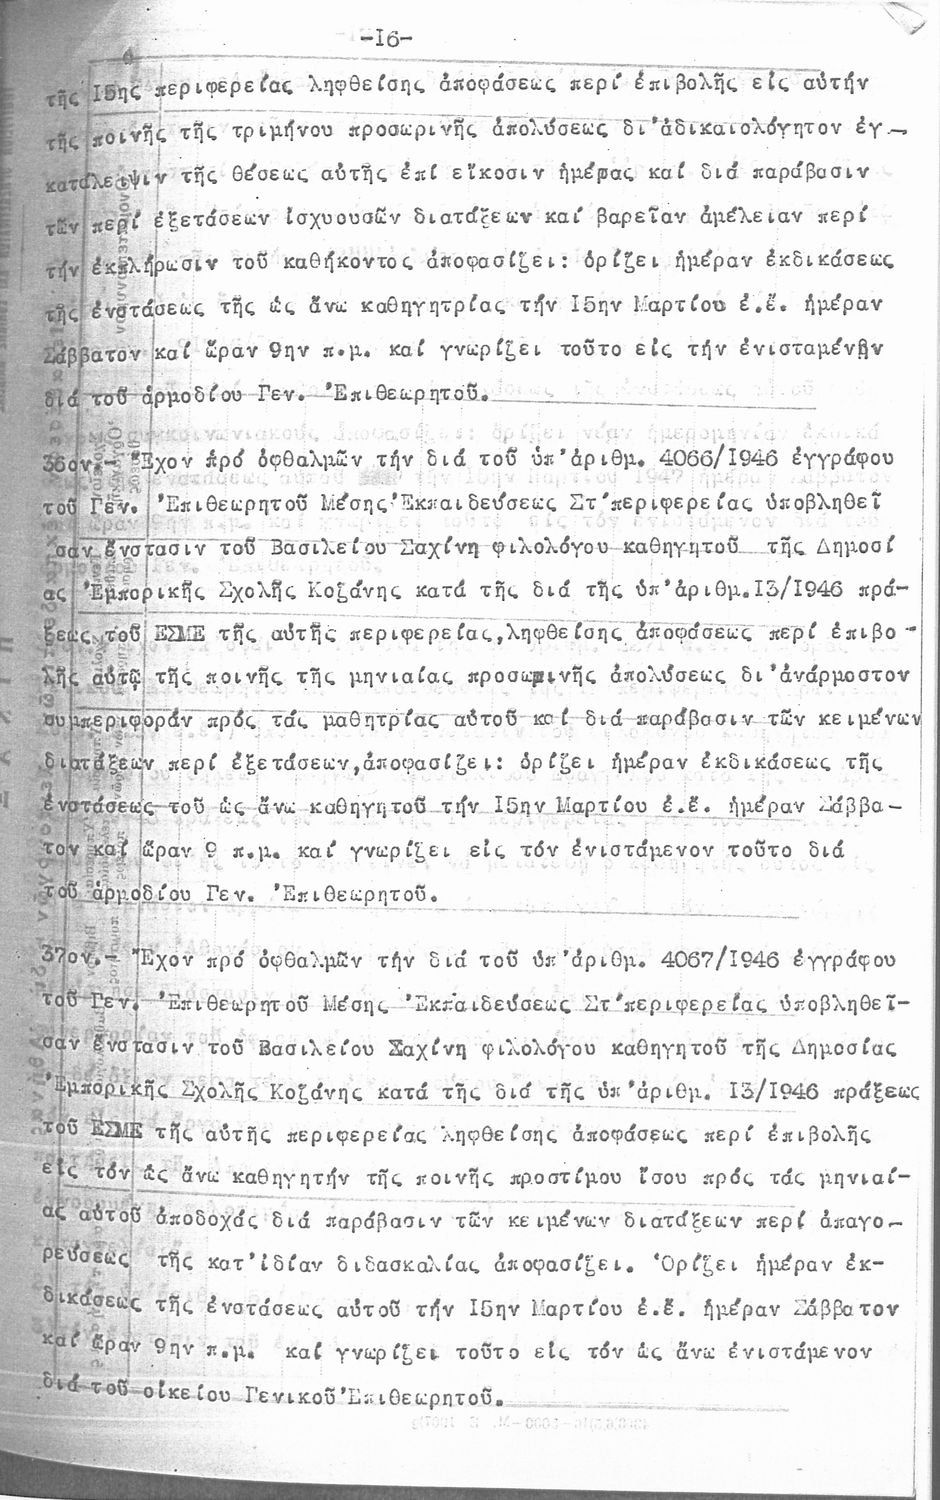 -16-
τῆς 15ης περιφερείας ληφθείσης ἀποφάσεως περί ἐπιβολῆς εἰς αὐτήν
τῆς ποινῆς τῆς τριμήνου προσωρινῆς ἀπολύσεως δι'ἀδικαιολόγητον ἐγ-
κατάλειψιν τῆς θέσεως αὐτῆς ἐπί εἴκοσιν ἡμέρας καί διά παράβασιν
τῶν περί ἐξετάσεων ἰσχυουσῶν διατάξεων καί βαρεῖαν ἀμέλειαν περί
τήν ἐκπλήρωσιν τοῦ καθήκοντος ἀποφασίζει: ὁρίζει ἡμέραν ἐκδικάσεως
τῆς ἐνστάσεως τῆς ὡς ἄνω καθηγητρίας τήν 15ην Μαρτίου ἐ.ἔ. ἡμέραν
Σάββατον καί ὥραν 9ην π.μ. καί γνωρίζει τοῦτο εἰς τήν ἐνισταμένην
διά τοῦ ἁρμοδίου Γεν. Ἐπιθεωρητοῦ.
36ον.- Ἔχον πρό ὀφθαλμῶν τήν διά τοῦ ὑπ'ἀριθμ. 4066/1946 ἐγγράφου
τοῦ Γεν. Ἐπιθεωρητοῦ Μέσης Ἐκπαιδεύσεως Στ'περιφερείας ὑποβληθεῖ
σαν ἔνστασιν τοῦ Βασιλείου Σαχίνη φιλολόγου καθηγητοῦ τῆς Δημοσί
ας Ἐμπορικῆς Σχολῆς Κοζάνης κατά τῆς διά τῆς ὑπ'ἀριθμ.13/1946 πρά-
ξεως τοῦ ΕΣΜΕ τῆς αὐτῆς περιφερείας,ληφθείσης ἀποφάσεως περί ἐπιβο-
λῆς αὐτῷ τῆς ποινῆς τῆς μηνιαίας προσωρινῆς ἀπολύσεως δι'ἀνάρμοστον
συμπεριφοράν πρός τάς μαθητρίας αὐτοῦ καί διά παράβασιν τῶν κειμένων
διατάξεων περί ἐξετάσεων,ἀποφασίζει: ὁρίζει ἡμέραν ἐκδικάσεως τῆς
ἐνστάσεως τοῦ ὡς ἄνω καθηγητοῦ τήν 15ην Μαρτίου ἐ.ἔ. ἡμέραν Σάββα-
τον καί ὥραν 9 π.μ. καί γνωρίζει εἰς τόν ἐνιστάμενον τοῦτο διά
τοῦ ἁρμοδίου Γεν. Ἐπιθεωρητοῦ.
37ον.- Ἔχον πρό ὀφθαλμῶν τήν διά τοῦ ὑπ'ἀριθμ. 4067/1946 ἐγγράφου
τοῦ Γεν. Ἐπιθεωρητοῦ Μέσης Ἐκπαιδεύσεως Στ'περιφερείας ὑποβληθεῖ-
σαν ἔνστασιν τοῦ Βασιλείου Σαχίνη φιλολόγου καθηγητοῦ τῆς Δημοσίας
Ἐμπορικῆς Σχολῆς Κοζάνης κατά τῆς διά τῆς ὑπ'ἀριθμ. 13/1946 πράξεως
τοῦ ΕΣΜΕ τῆς αὐτῆς περιφερείας ληφθείσης ἀποφάσεως περί ἐπιβολῆς
εἰς τόν ὡς ἄνω καθηγητήν τῆς ποινῆς προστίμου ἴσου πρός τάς μηνιαί-
ας αὐτοῦ ἀποδοχάς διά παράβασιν τῶν κειμένων διατάξεων περί ἀπαγο-
ρεύσεως τῆς κατ'ἰδίαν διδασκαλίας ἀποφασίζει. Ὁρίζει ἡμέραν ἐκ-
δικάσεως τῆς ἐνστάσεως αὐτοῦ τήν 15ην Μαρτίου ἐ.ἔ. ἡμέραν Σάββατον
καί ὥραν 9ην π.μ. καί γνωρίζει τοῦτο εἰς τόν ὡς ἄνω ἐνιστάμενον
διά τοῦ οἰκείου Γενικοῦ Ἐπιθεωρητοῦ.